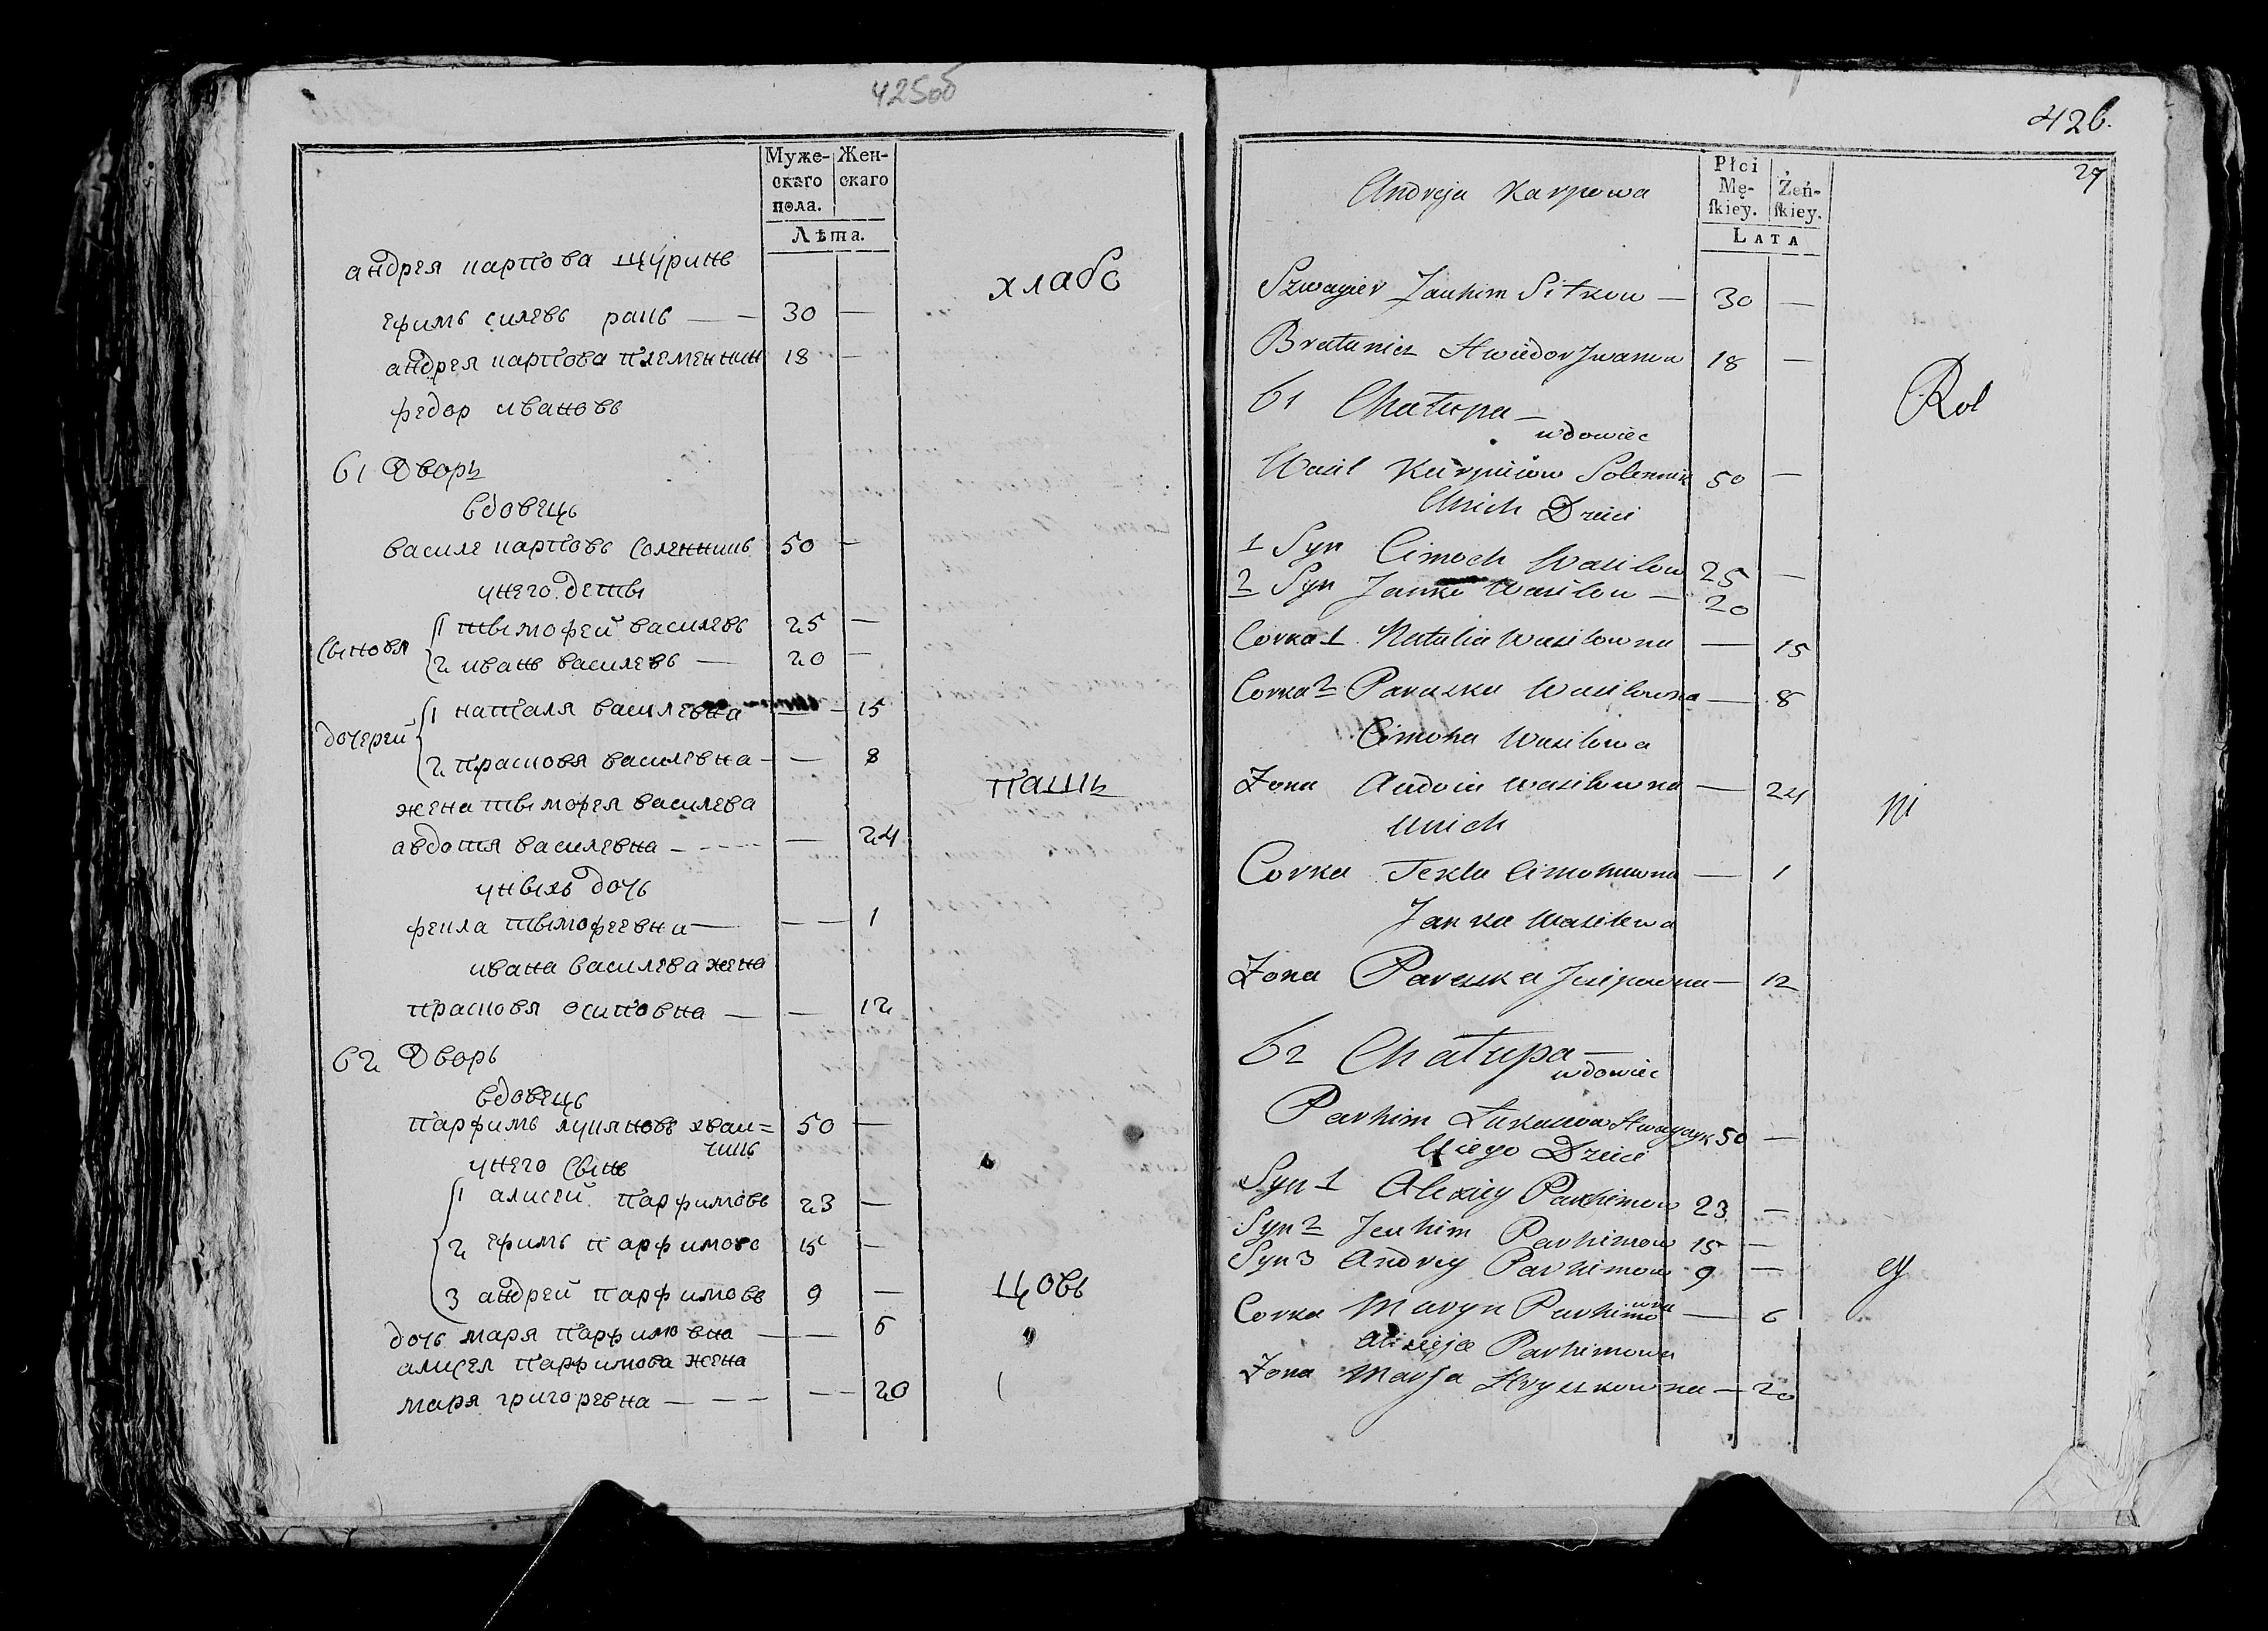 425об
Муже-
скаго
пола.
Жен-
скаго
Лѣта.
андрея карпова щуринъ
хлабо
ефимъ силевъ — 30 —
андрея карпова племенник 18 —
федор ивановъ
61 Дворъ
вдовецъ
василе карповъ соленникъ 50 —
унего детьі
сыновя
1 тымофей василевъ 25 —
2 иванъ василевъ — 20 —
дочерей
1 наталя василевна — 15
2 прасковя василевна — — 8
пашъ
жена тымофея василева
авдотя василевна — — 24
уныхъ дочъ
фекла тымофеевна — — 1
ивана василева жена
прасковя осиповна — — 12
62 Дворъ
вдовецъ
парфимъ лукяновъ 50 —
унего сынъ
1 алисей парфимовъ 23 —
2 ефимъ парфимовъ 15 —
3 андрей парфимовъ 9 —
цовъ
дочъ маря парфимовна — — 6
алисея парфимова жена
маря григоревна — — — 20
426.
27
Andreja Karpowa
Płci
Mę-
ſkiey.
Żeń-
ſkiey.
LATA
Szwagier Jauhim Sitkow — 30 —
Bratanicz Hwiedor Jwanow 18 —
61 Chałupa —
Rol
wdowiec
Wasil Karpiow Solennik 50 —
Unich Dzieci
1 Syn Cimoch Wasilow 25 —
2 Syn Janko Wasilow — 20
Corka 1 Natalia Wasilowna — 15
Corka 2 Paraska Wasilowna — 8
Cimoha Wasilowa
Zona Audocia Wasilowna — 24
ni
Unich
Corka Tekla Cimohowna — 1
Janka Wasilowa
Zona Paraska Jusipowna — 12
62 Chałupa —
wdowiec
Parhim Łukanow 50 —
Uiego Dzieci
Syn 1 Alexiey Parhimow 23 —
Syn 2 Jeuhim Parhimow 15 —
Syn 3 Andrey Parhimow 9 —
cy
Corka Maryn Parhimowna — 6
Alixieja Parhimowa
Zona Marja Hryszkowna — 20